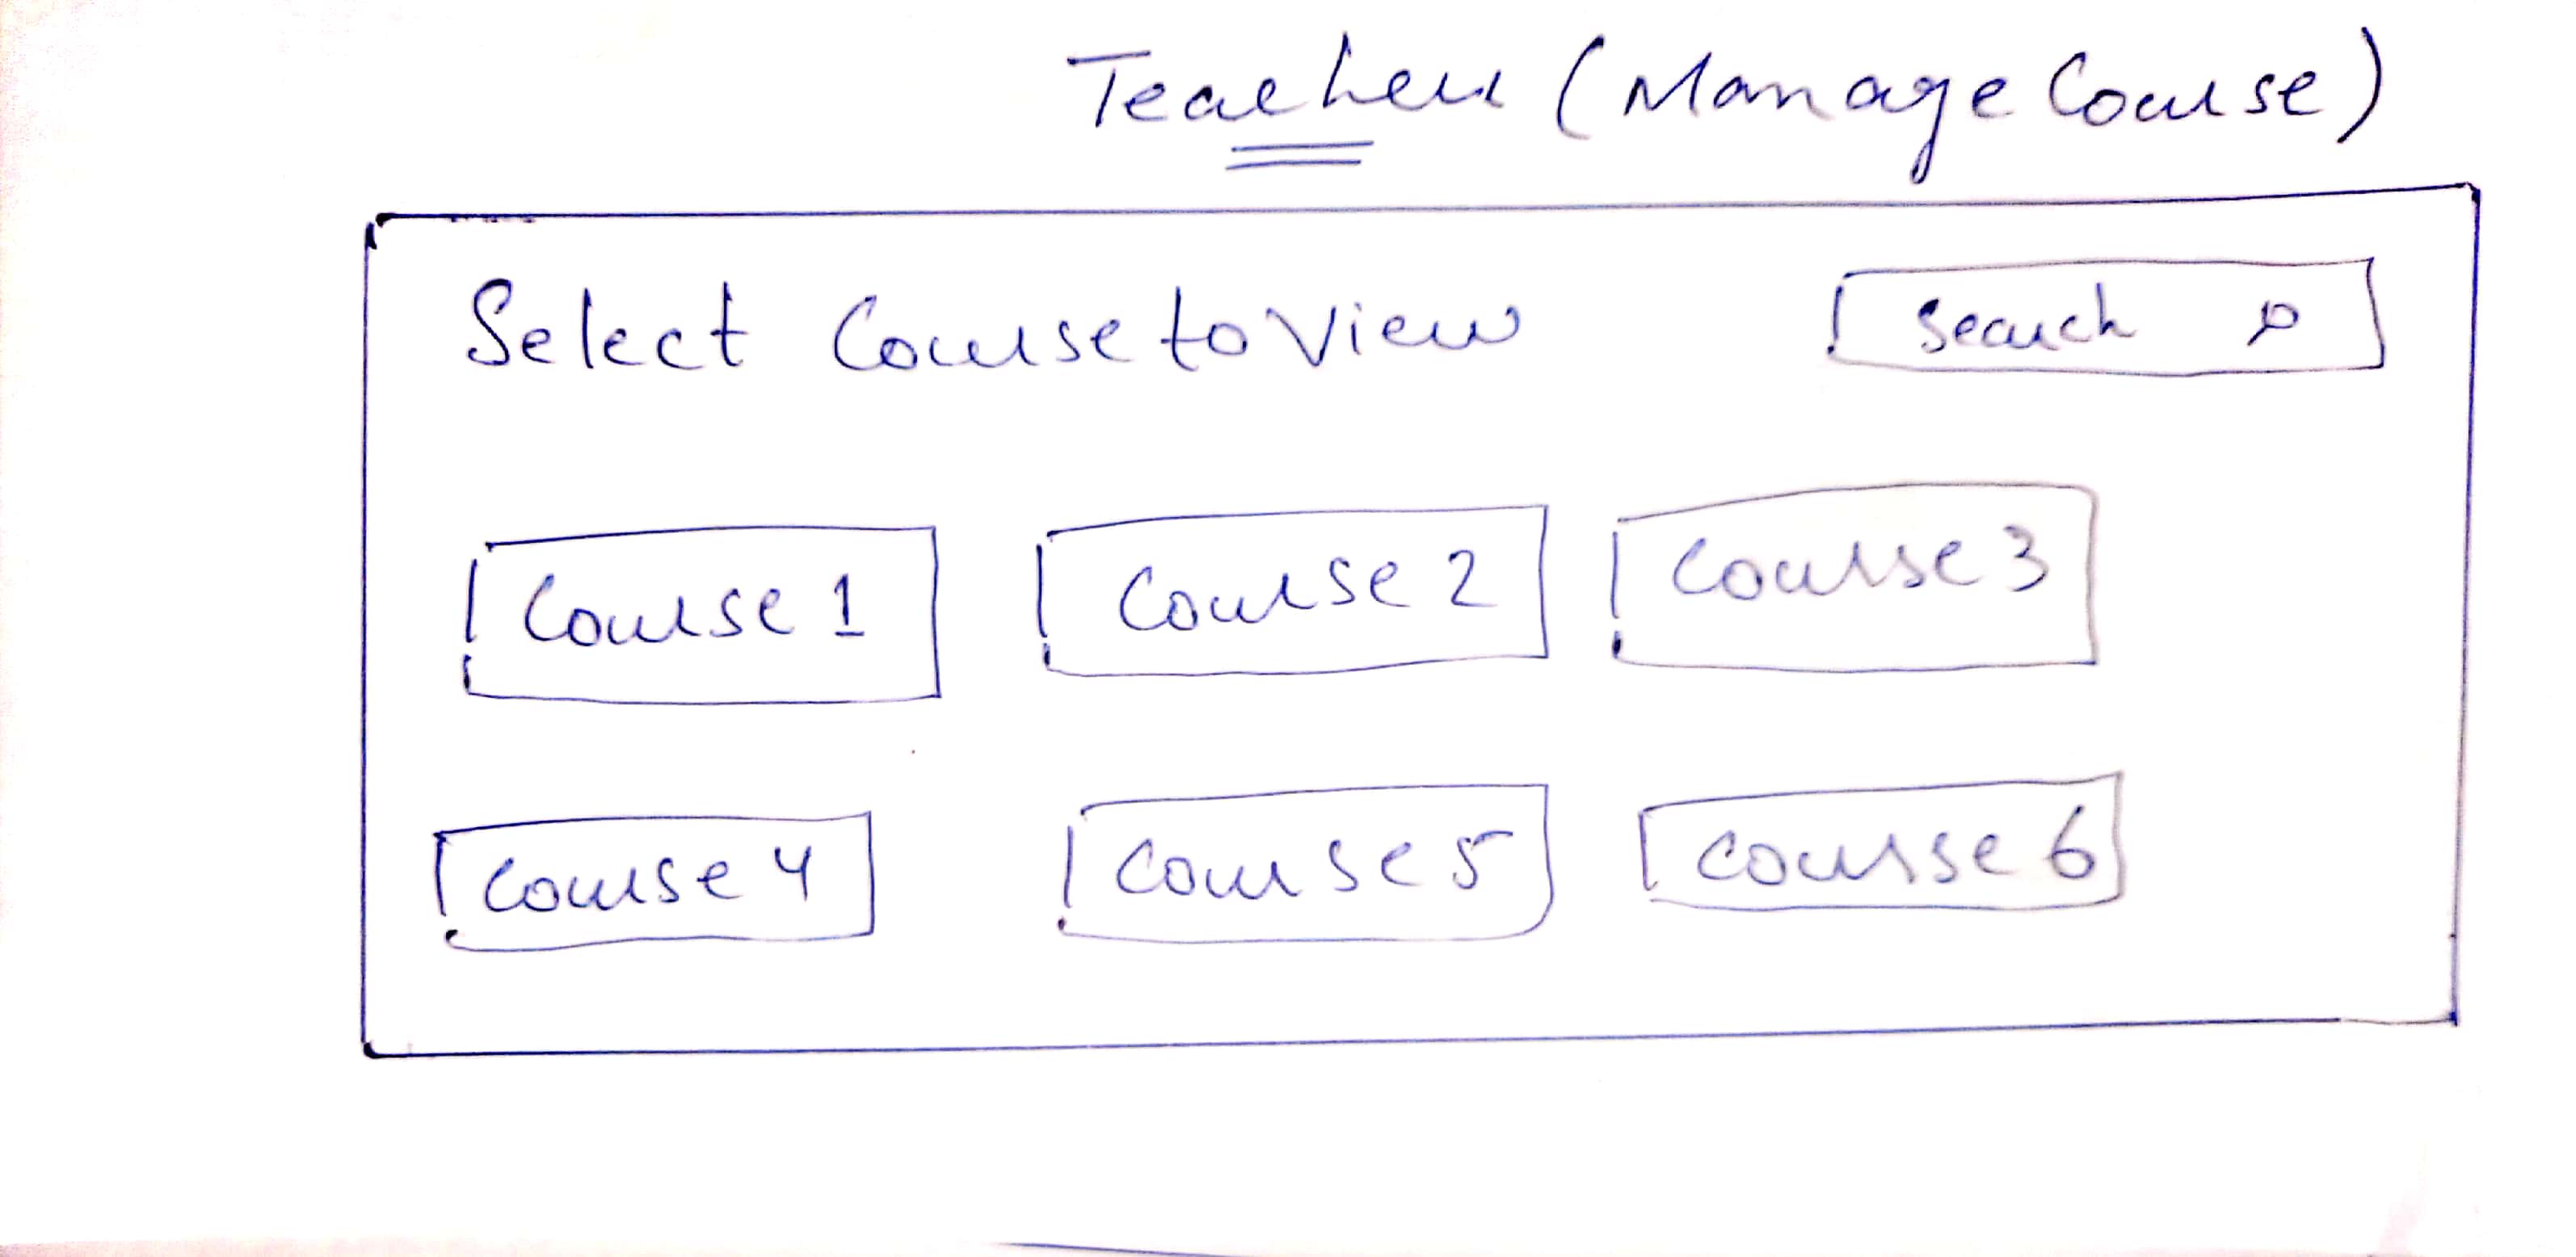 Teacher (Manage Course)
Select Course to View
Search
Course 1
Course 2
Course 3
Course 4
Course 5
Course 6